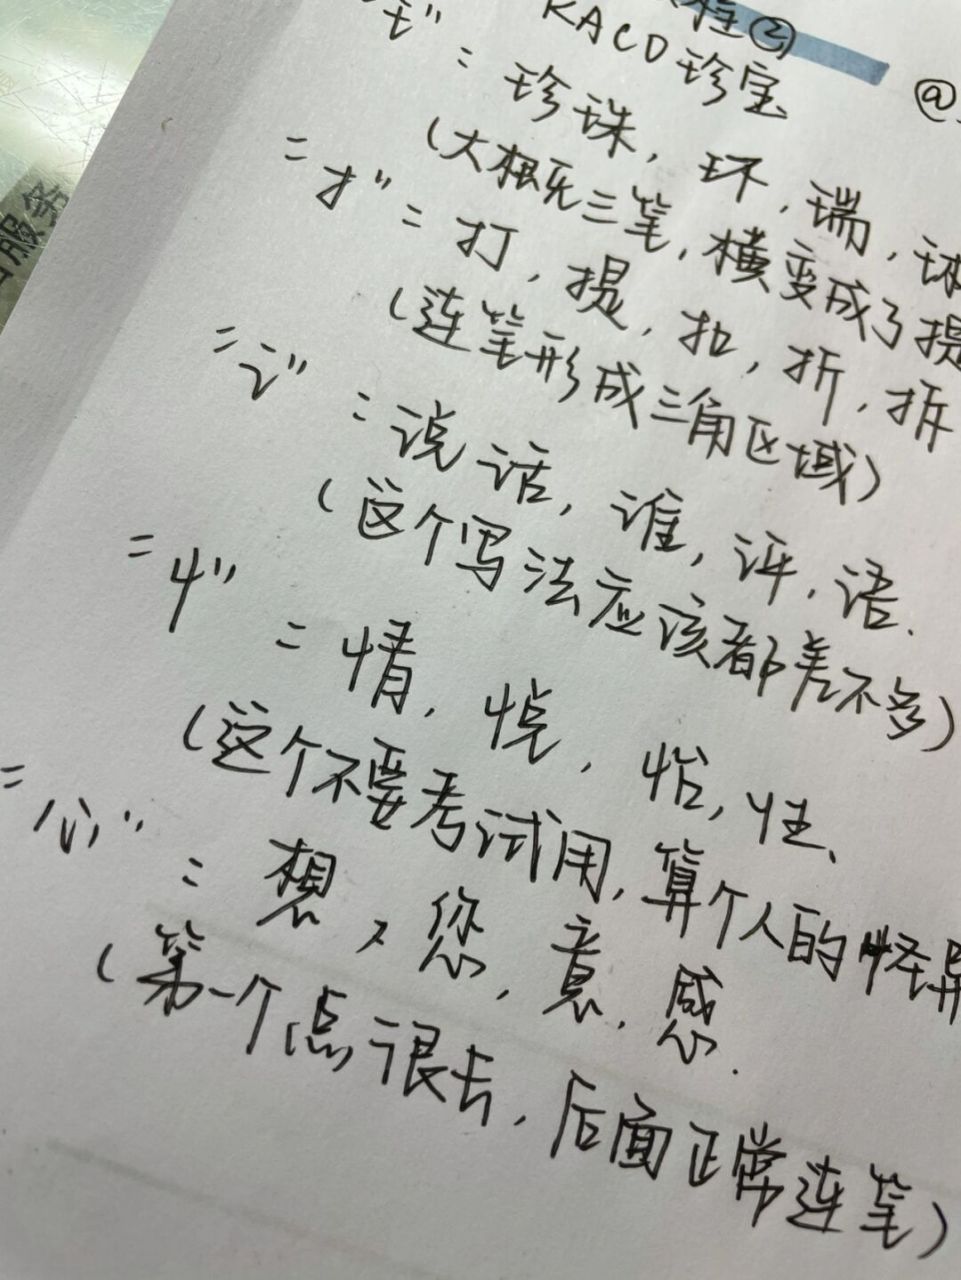 程②
KACO珍宝
@
"王" : 珍珠, 环, 瑞, 球
(大概死三笔, 横变成了提
"扌" : 打, 提, 扣, 折, 拆
(连笔形成三角区域)
"讠" : 说话, 谁, 评, 语.
(这个写法应该都差不多)
"忄" : 情, 悦, 怡, 性、
(这个不要考试用, 算个人的怪异
"心" : 想, 您, 意, 感.
(第一个点很长, 后面正常连笔)
服务